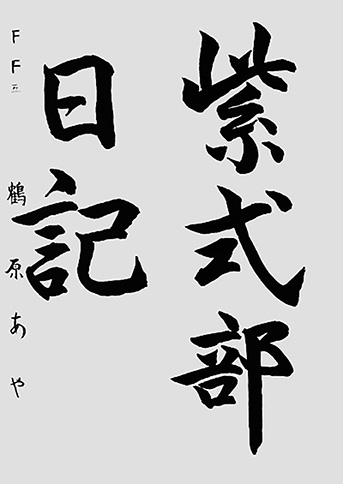 紫式部
日記
FF二 鶴原あや